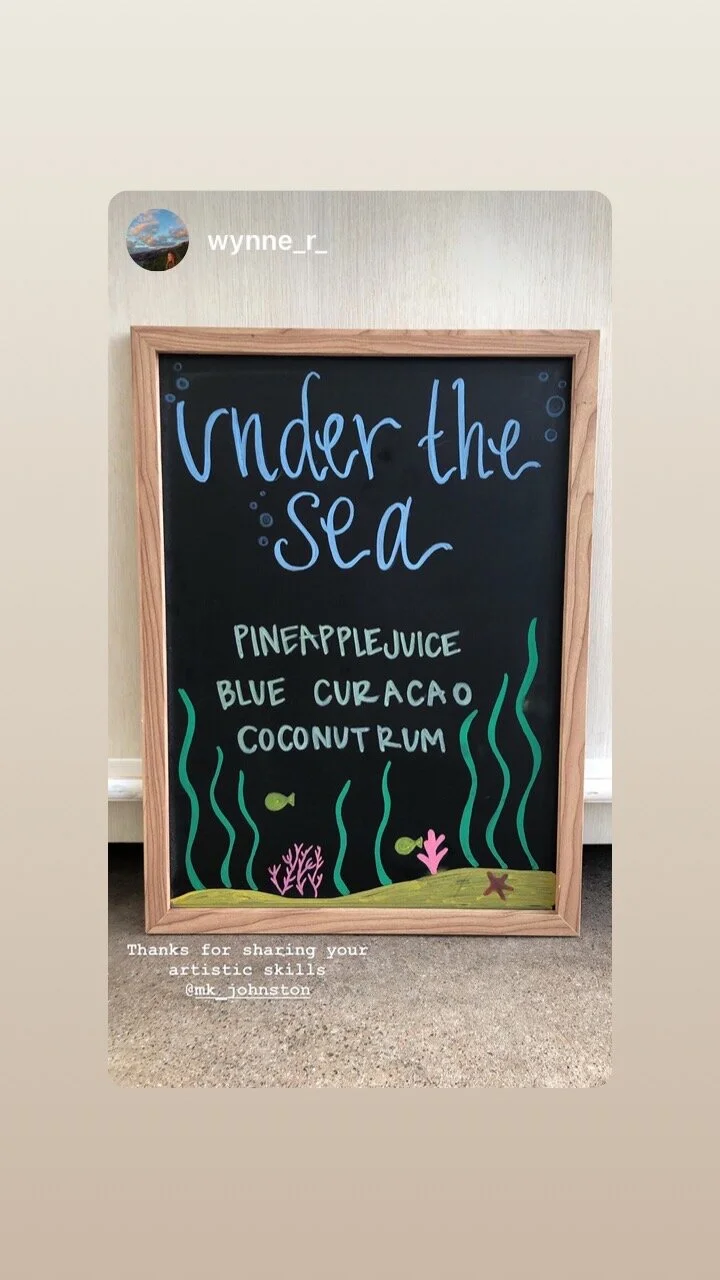 wynne_r_
under the
sea
PINEAPPLE JUICE
BLUE CURACAO
COCONUT RUM
Thanks for sharing your
artistic skills
@mk_johnston